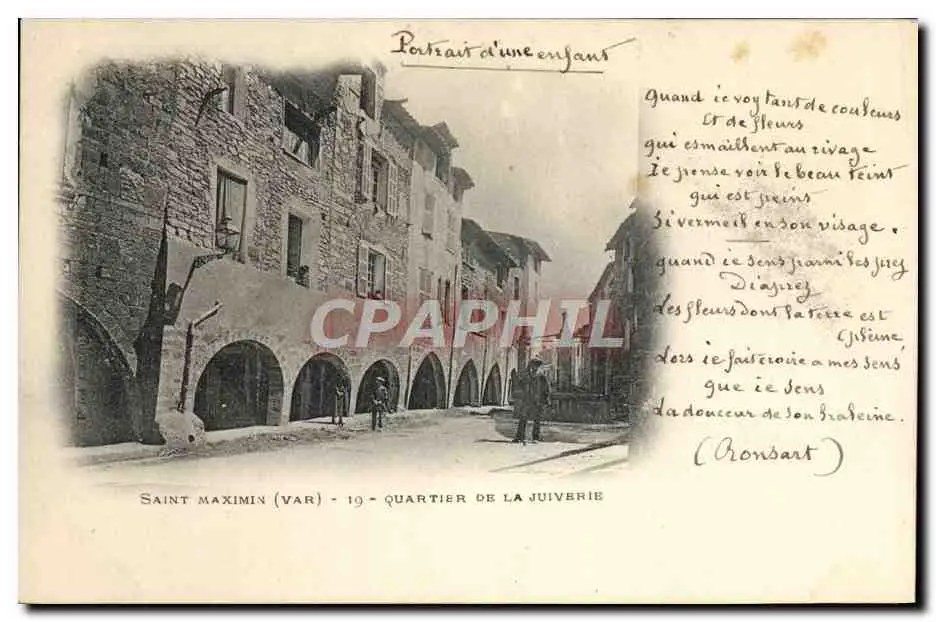 Portrait d'une enfant
Quand ie voy tant de couleurs
Et de fleurs
qui esmaillent au rivage
Ie pense voir le beau teint
qui est peins
Si vermeil en son visage.
quand ie sens parmi les prez
Diaprez
Les fleurs dont la terre est
(pleine,
Lors ie fait croire a mes sens
que ie sens
La douceur de son haleine.
(Ronsart)
CPAPHIL.COM
SAINT MAXIMIN (VAR) - 19 - QUARTIER DE LA JUIVERIE